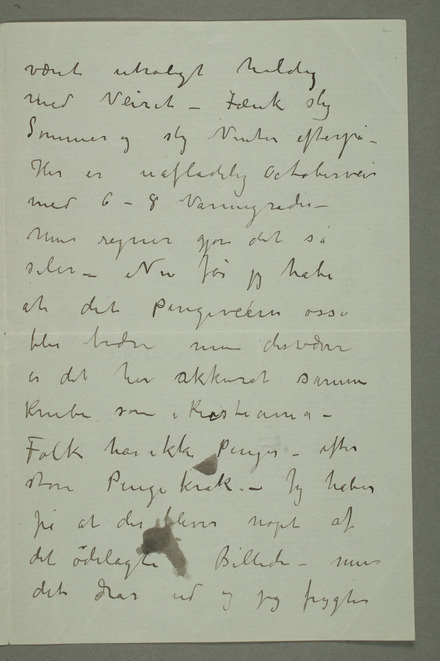 været utroligt heldig
med Veiret – Tænk slig
Sommer og slig Vinter efterpå –
Her er uafladelig Octoberveir
med 6 – 8 Varmegrader –
Men regner gjør det så
siler – Nu får jeg håbe
at det Pengeveiret osså
blir bedre men desværre
er det her akkurat samme
Knibe som i Kristiania –
Folk har ikke Penger – efter
store Penge krak. – Jeg håber
på at der blever nogt af
det ödelagte Billede – men
det drar ud og jeg frygter